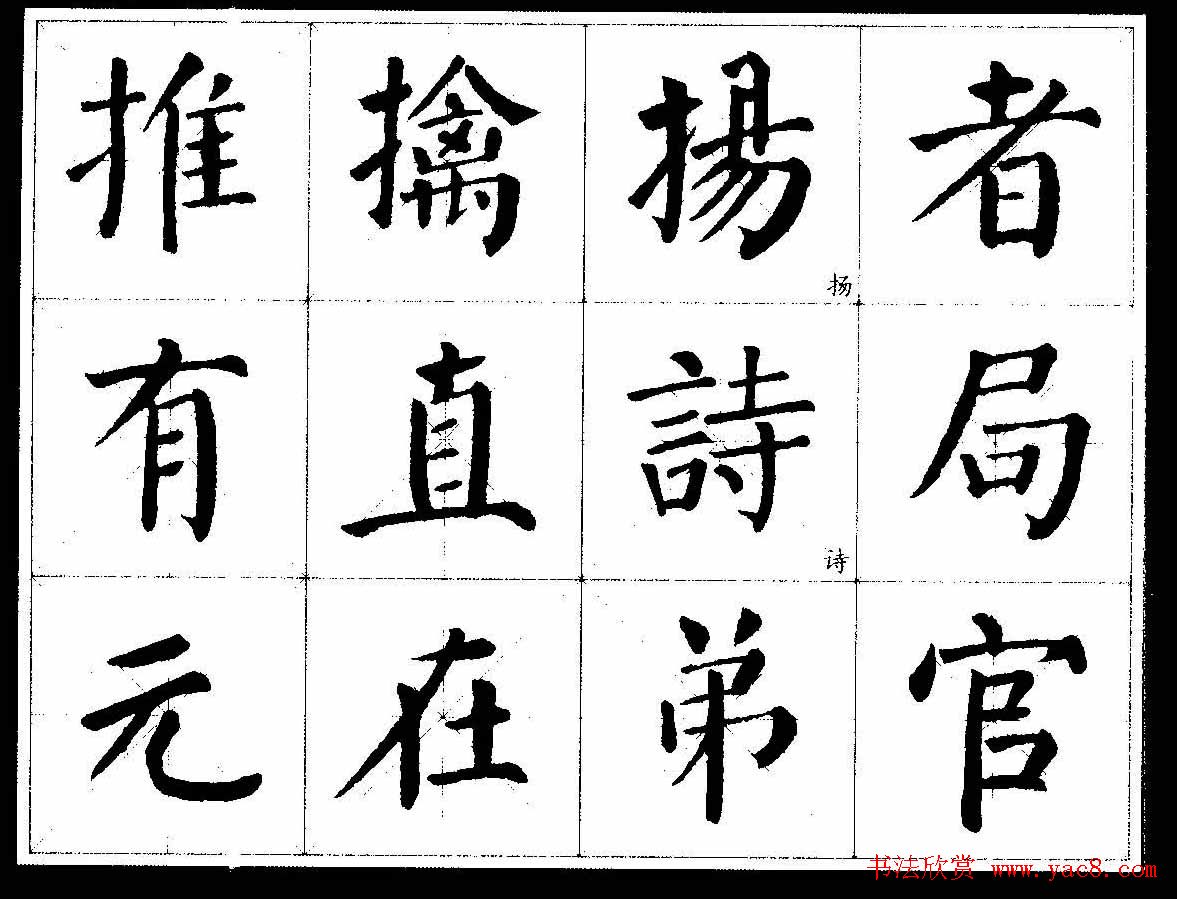 推擒揚者
扬
有直詩局
诗
元在弟官
书法欣赏 www.yac8.com